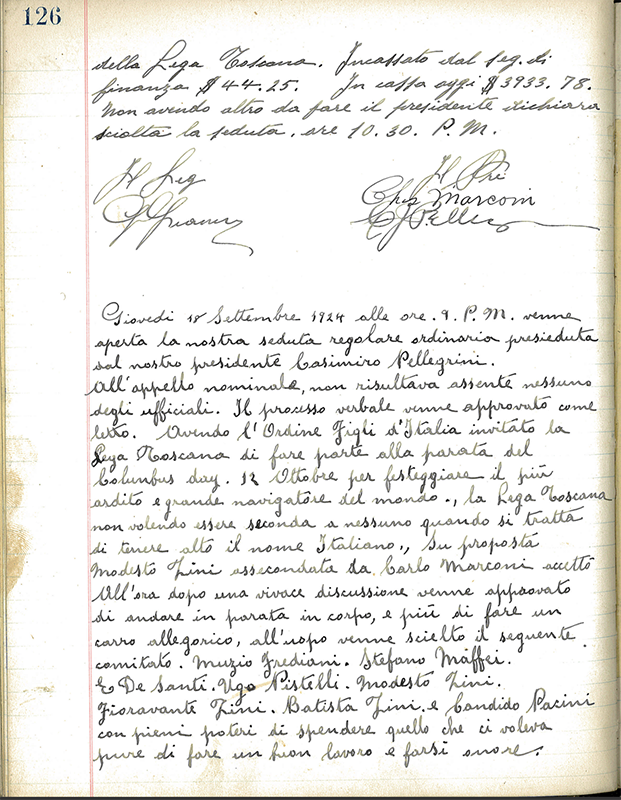 126
della Lega Toscana. Incassato dal seg. di
finanza $44.25. In cassa oggi $3933.78.
Non avendo altro da fare il presidente dichiara
sciolta la seduta, ore 10.30. P.M.
Il Seg
Il Pre
Chas Marconi
Giovedi 18 Settembre 1924 alle ore. 9. P.M. venne
aperta la nostra seduta regolare ordinaria presieduta
dal nostro presidente Casimiro Pellegrini.
All'appello nominale, non risultava assente nessuno
degli ufficiali. Il processo verbale venne approvato come
letto. Avendo l'Ordine Figli d'Italia invitato la
Lega Toscana di fare parte alla parata del
Columbus day. 12 Ottobre per festeggiare il più
ardito e grande navigatore del mondo., la Lega Toscana
non volendo essere seconda a nessuno quando si tratta
di tenere alto il nome Italiano., Su proposta
Modesto Zini assecondata da Carlo Marconi accettò
All'ora dopo una vivace discussione venne approvato
di andare in parata in corpo, e più di fare un
carro allegorico, all'uopo venne scielto il seguente
comitato. Muzio Frediani. Stefano Maffei.
E De Santi. Ugo Pistelli. Modesto Zini.
Fioravante Zini. Batista Zini. e Candido Pacini
con pieni poteri di spendere quello che ci voleva
pure di fare un buon lavoro e farsi onore.